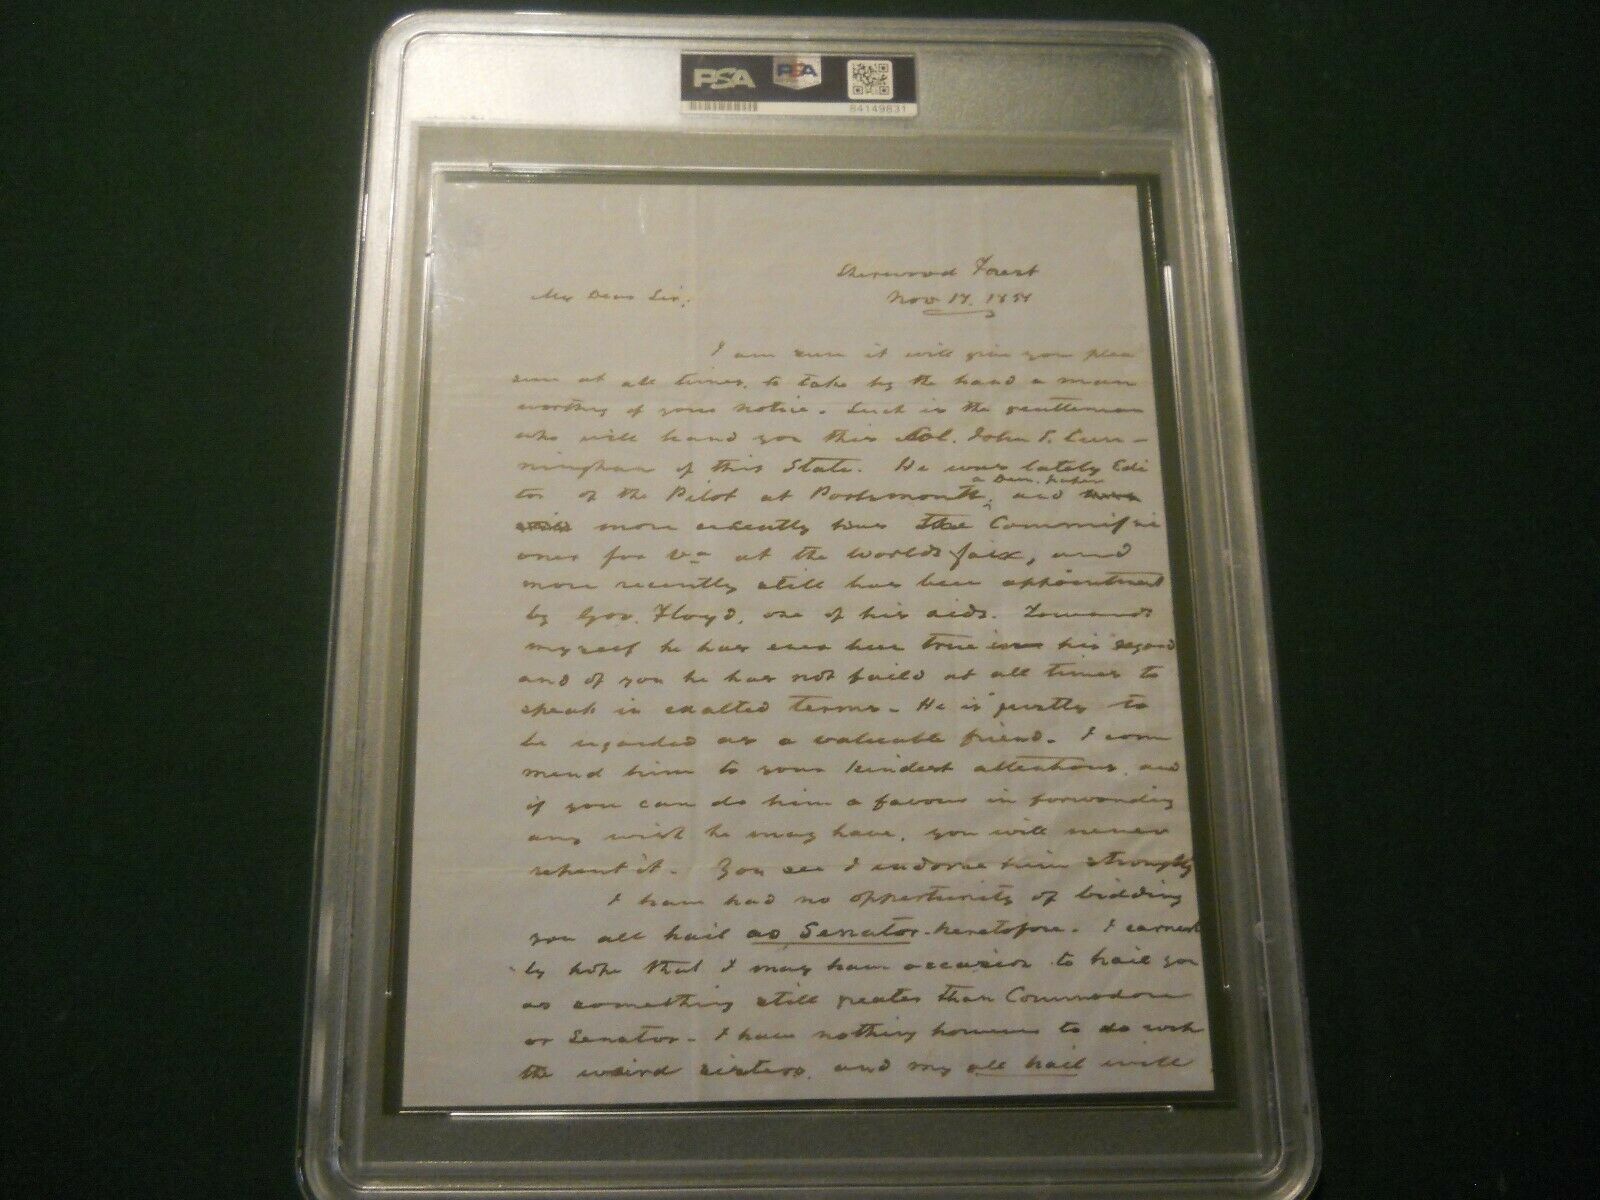 PSA
PSA
84149831
Sherwood Forest
Nov 17. 1851
My Dear Sir;
I am sure it will give you plea
sure at all times, to take by the hand a man
worthy of your notice. Such is the gentleman
who will hand you this Col. John S. Cun-
ningham of this State. He was lately Edi
a Dem. paper
tor of the Pilot at Portsmouth, and
more recently the Commissi
oner for Va at the worlds fair, and
more recently still has been appointed
by Gov. Floyd, one of his aids. Towards
myself he has ever been true in his regard
and of you he has not faild at all times to
speak in exalted terms. He is justly to
be regarded as a valuable friend. I com
mend him to your kindest attentions, and
if you can do him a favour in forwarding
any wish he may have, you will never
repent it. You see I endorse him strongly
I have had no opportunity of bidding
you all hail as Senator heretofore. I earnest
ly hope that I may have occasion to hail you
as something still greater than Commodore
or Senator. I have nothing however to do with
the weird sisters, and my all hail will